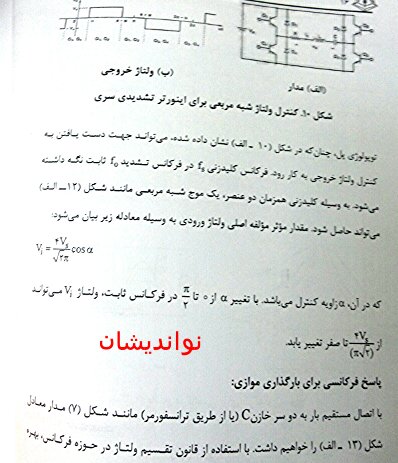 (الف) مدار
(ب) ولتاژ خروجی
شکل ۱۰. کنترل ولتاژ شبه مربعی برای اینورتر تشدیدی سری
توپولوژی پل، چنان‌که در شکل (۱۰ ـ الف) نشان داده شده، می‌تواند جهت دست یافتن به
کنترل ولتاژ خروجی به کار رود. فرکانس کلیدزنی fs در فرکانس تشدید fo ثابت نگه داشته
می‌شود. به وسیله کلیدزنی همزمان دو عنصر، یک موج شبه مربعی مانند شکل (۱۲ـ الف)
می‌تواند حاصل شود. مقدار مؤثر مؤلفه اصلی ولتاژ ورودی به وسیله معادله زیر بیان می‌شود:
Vi = ۴Vs/√۲π cos α
که در آن، α زاویه کنترل می‌باشد. با تغییر α از ۰ تا π/۲ در فرکانس ثابت، ولتاژ Vi می‌تواند
از ۴Vs/(π√۲) تا صفر تغییر یابد.
نواندیشان
پاسخ فرکانسی برای بارگذاری موازی:
با اتصال مستقیم بار به دو سر خازن C (یا از طریق ترانسفورمر) مانند شکل (۷) مدار معادل
شکل (۱۳ ـ الف) را خواهیم داشت. با استفاده از قانون تقسیم ولتاژ در حوزه فرکانس، بهره